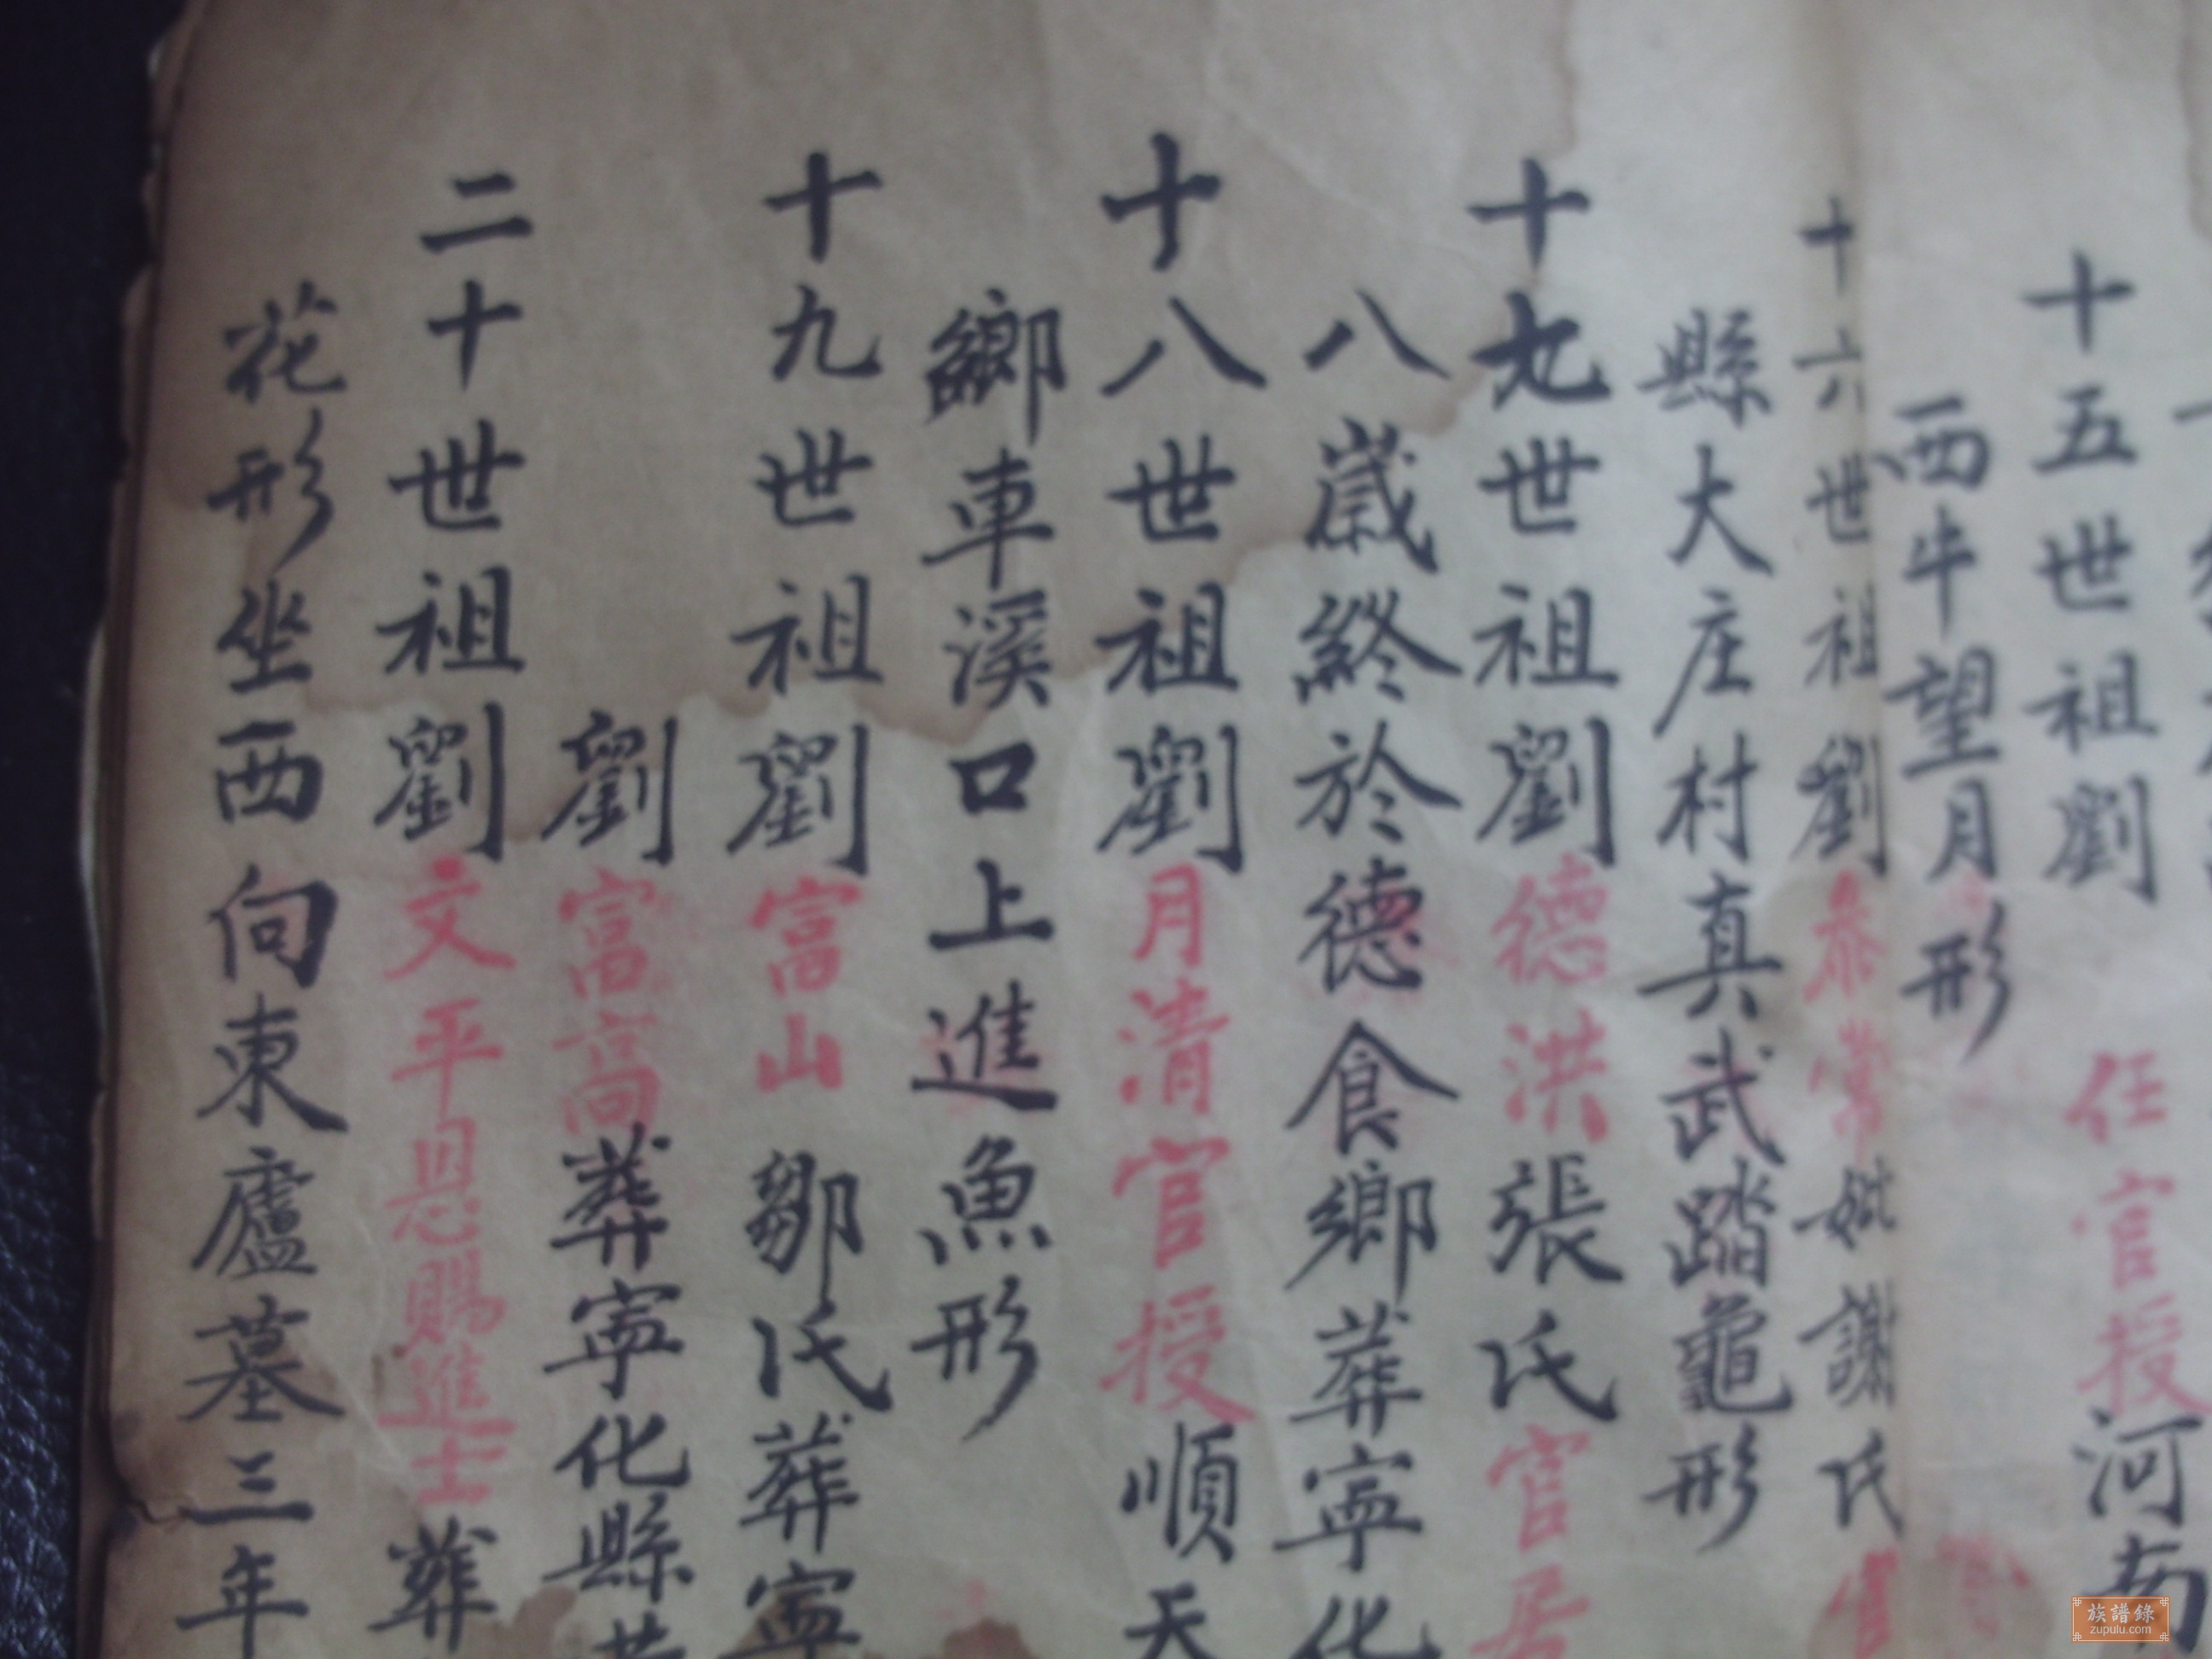 十五世祖劉 任官授河南
西牛望月形
十六世祖劉泰常妣謝氏官
縣大庄村真武踏龜形
十七世祖劉德洪張氏官居
八歲終於德食鄉葬寧化
十八世祖劉月清官授順天
鄉車溪口上進魚形
十九世祖劉富山 鄒氏葬寧
劉富高葬寧化縣
二十世祖劉文平恩賜進士葬
花形坐西向東廬墓三年
族譜錄
zupulu.com